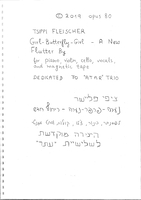 © 2019 opus 80
TSIPPI FLEISCHER
Girl-Butterfly-Girl - A New
Flutter By
for piano, viola, cello, vocals,
and magnetic tape
DEDICATED TO "ATAR" TRIO
ציפי פליישר
נערה-פרפר-נערה -
היצירה מוקדשת
לשלישיית "עתר"